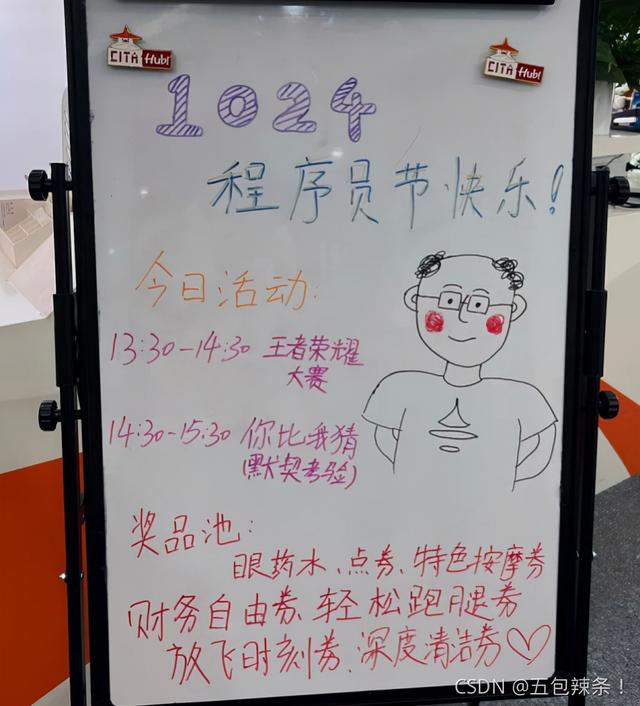 CITA Hub!
CITA Hub!
1024
程序员节快乐!
今日活动:
13:30-14:30 王者荣耀
大赛
14:30-15:30 你比我猜
(默契考验)
奖品池:
眼药水、点券、特色按摩券
财务自由券、轻松跑腿券
放飞时刻券、深度清洁券♡
CSDN @五包辣条！